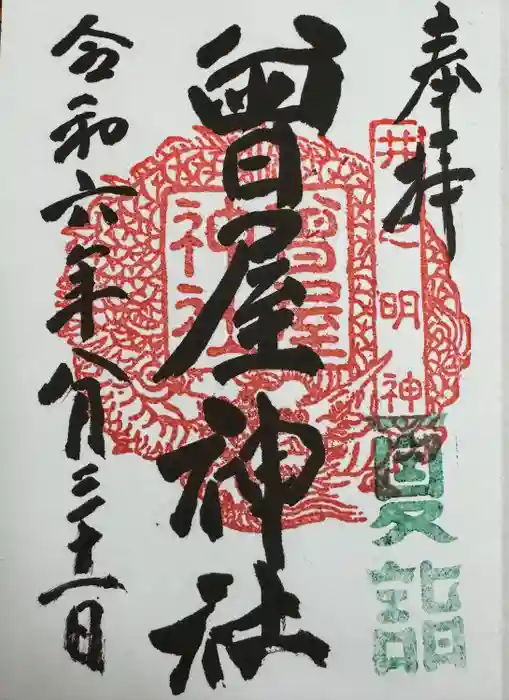 奉拝
井之明神
夏詣
曾屋神社
曾屋神社
令和六年八月三十一日